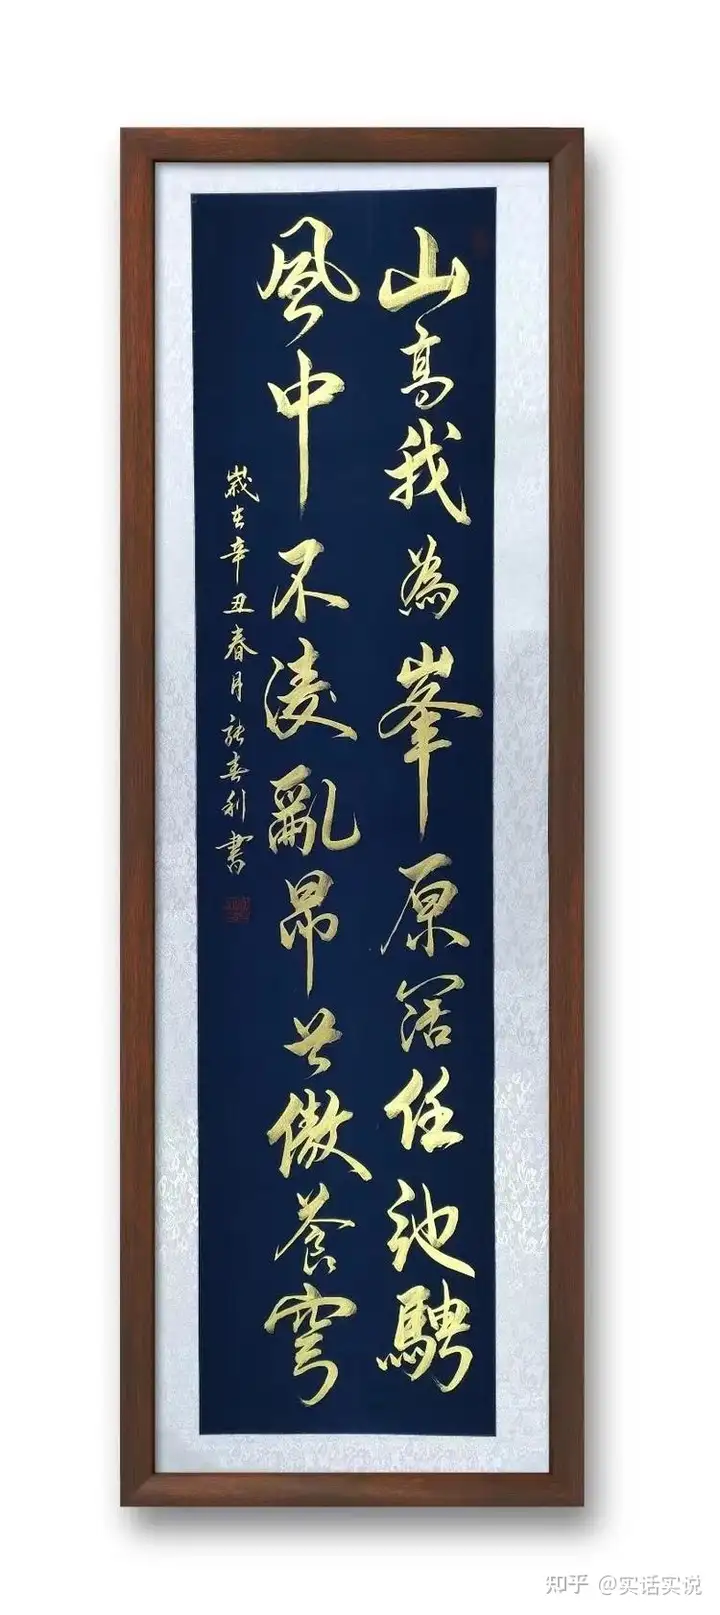 山高我為峯原闊任弛騁
風中不淩亂昂首傲蒼穹
歲在辛丑春月張喜利書
知乎 @实话实说